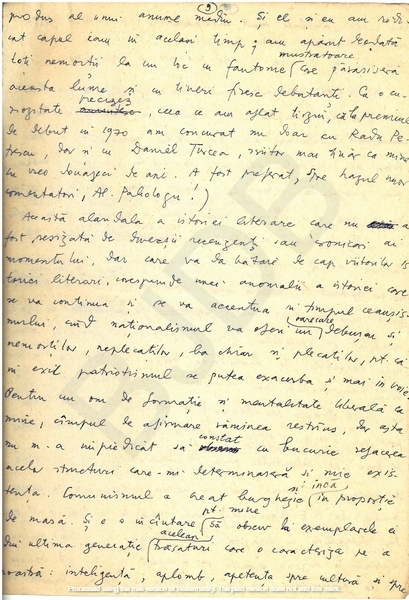 9
produs al unui anume mediu. Și el și eu am ridi-
cat capul cam în același timp; am apărut deodată
toți nemorții la un loc în fantome mustrătoare (ce părăsiseră
această lume și cu tineri firesc debutanți. Ca o cu-
riozitate precizez, ceea ce am aflat târziu, că la premiul
de debut în 1970 am concurat nu doar cu Radu Pe-
trescu, dar și cu Daniel Turcea, scriitor mai tânăr ca mine
cu vreo douăzeci de ani. A fost preferat, spre hazul unor
comentatori, Al. Paleologu!)
Această alandala a istoriei literare care nu a
fost sesizată de diverșii recenzenți sau cronicari ai
momentului, dar care va da bătăi de cap viitorilor is-
torici literari, corespunde unei anomalii a istoriei care
se va continua și se va accentua în timpul ceaușis-
mului, când naționalismul va oferi un oarecare debușeu și
nemorților, neplecaților, ba chiar și plecaților, pt. că
în exil patriotismul se putea exacerba și mai în voie.
Pentru un om de formație și mentalitate liberală ca
mine, câmpul de afirmare rămânea restrâns, dar asta
nu m-a împiedicat să constat cu bucurie refacerea
acelor structuri care-mi determinaseră și mie exis-
tența. Comunismul a creat burghezie și încă în proporții
de masă. Și e o încântare pt. mine să observ la exemplarele ei
din ultima generație aceleași trăsături care o caracteriza pe a
noastră: inteligență, aplomb, apetența spre cultură și spre